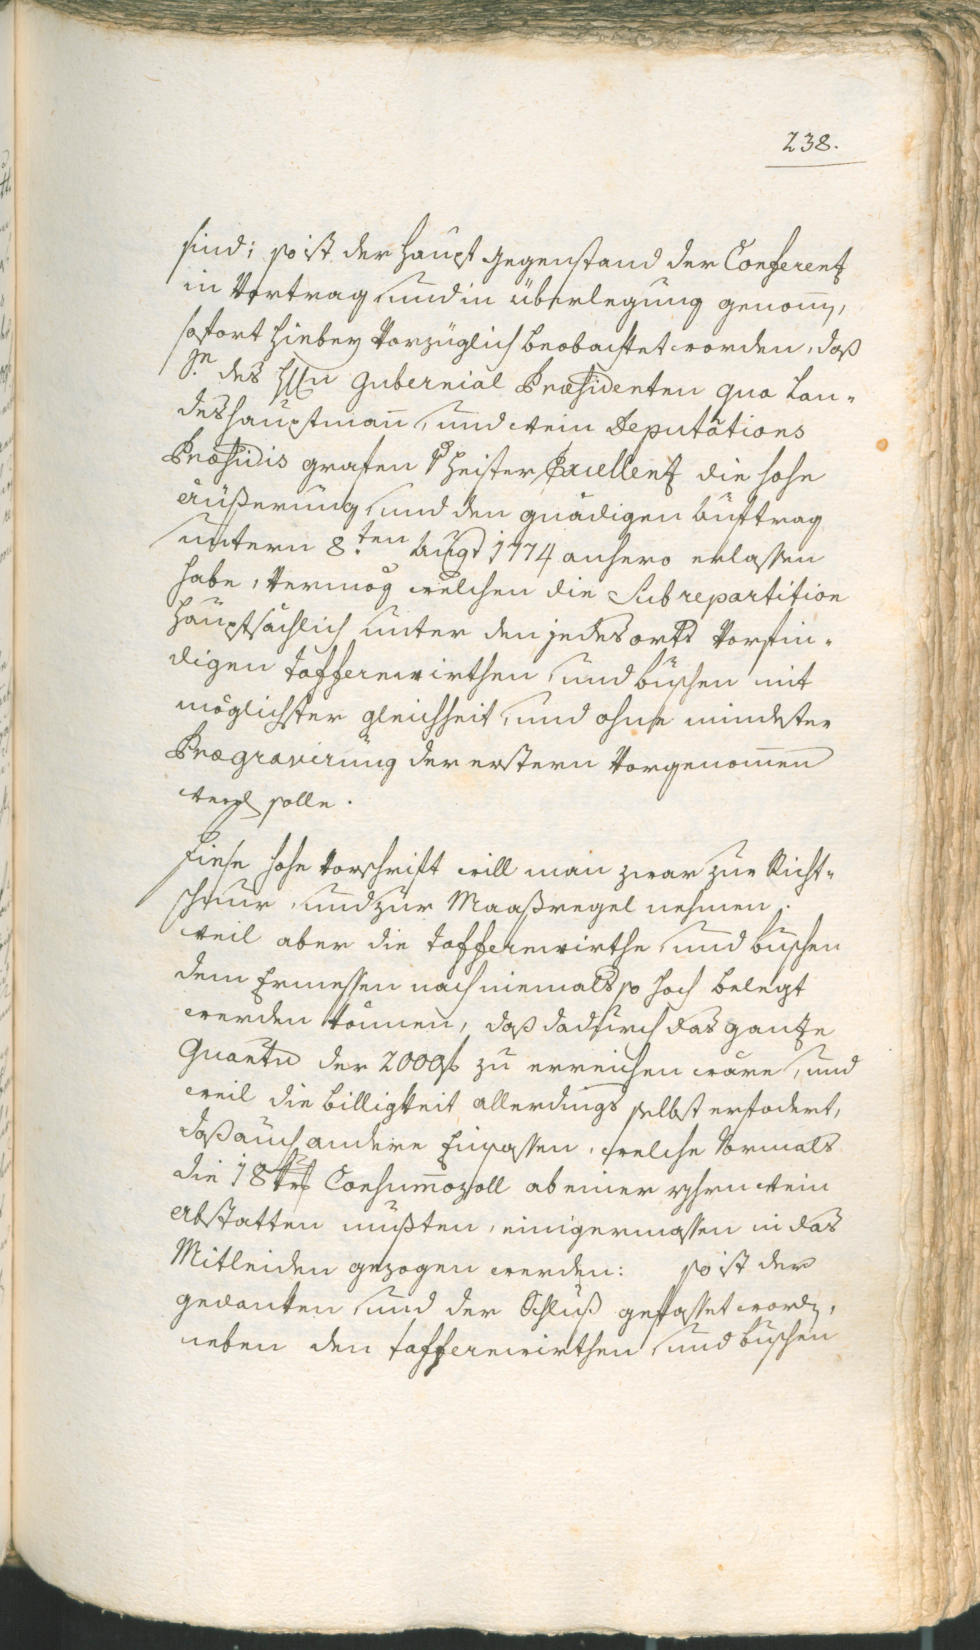 238.
sind; so ist der Haupt Gegenstand der Conferenz
in Vortrag, und in überlegung genom̅en,
sofort hiebey Vorzüglich beobachtet worden, daß
Se. des H[err]n Gubernial Præsidenten qua Lan-
deshauptman̅, und Wein Deputations
Præsidis grafen v Heister Excellenz die hohe
äüßerung, und den gnädigen auftrag
untern 8.ten Augt 1774 anhero erlassen
habe, Vermög welchen die Subrepartition
Hauptsächlich unter den jedes orts Vorfin-
digen tafferewirthen, und buschen mit
möglichster gleichheit, und ohne mindester
Prægravirung der erstern Vorgenom̅en
werd[en] solle.
Diese hohe Vorschrift will man zwar zur Richt-
schnur, und zur Maaßregel nehmen.
Weil aber die tafferewirthe, und buschen
dem Ermessen nach niemals so hoch belegt
werden können, daß dadurch das ganze
Quantu der 2000 f zu erreichen wäre, und
weil die billigkeit allerdings selbst erfodert,
daß auch andere Insassen, welche Vormals
die 18 Consum̅ozoll ab einer yhrn Wein
abstatten müßten, einigermassen in das
Mitleiden gezogen werden: so ist der
gedanken, und der Schluß gefasset word[en],
neben den tafferewirthen, und buschen